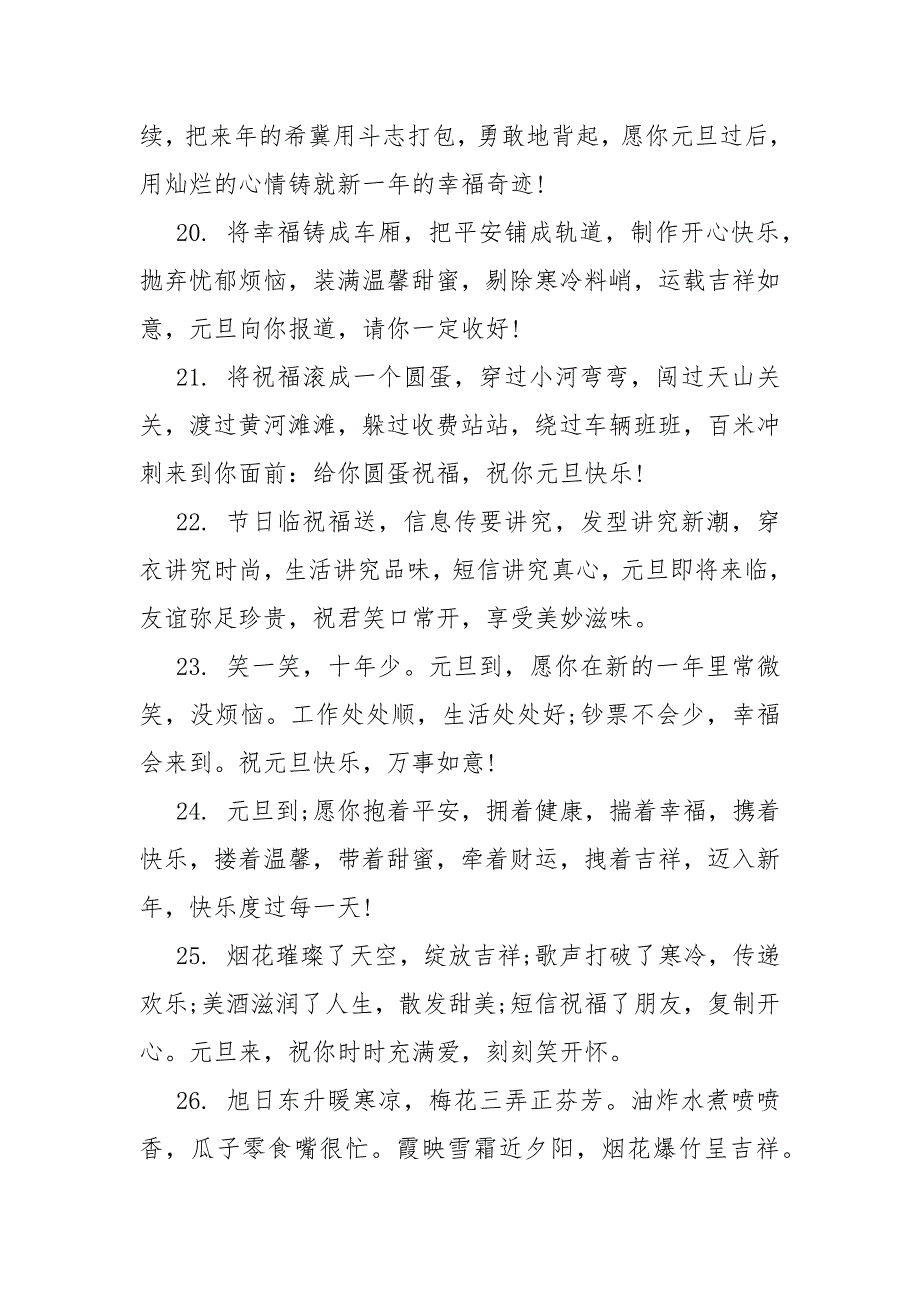 续，把来年的希冀用斗志打包，勇敢地背起，愿你元旦过后，
用灿烂的心情铸就新一年的幸福奇迹!
20. 将幸福铸成车厢，把平安铺成轨道，制作开心快乐，
抛弃忧郁烦恼，装满温馨甜蜜，剔除寒冷料峭，运载吉祥如
意，元旦向你报道，请你一定收好!
21. 将祝福滚成一个圆蛋，穿过小河弯弯，闯过天山关
关，渡过黄河滩滩，躲过收费站站，绕过车辆班班，百米冲
刺来到你面前：给你圆蛋祝福，祝你元旦快乐!
22. 节日临祝福送，信息传要讲究，发型讲究新潮，穿
衣讲究时尚，生活讲究品味，短信讲究真心，元旦即将来临，
友谊弥足珍贵，祝君笑口常开，享受美妙滋味。
23. 笑一笑，十年少。元旦到，愿你在新的一年里常微
笑，没烦恼。工作处处顺，生活处处好;钞票不会少，幸福
会来到。祝元旦快乐，万事如意!
24. 元旦到;愿你抱着平安，拥着健康，揣着幸福，携着
快乐，搂着温馨，带着甜蜜，牵着财运，拽着吉祥，迈入新
年，快乐度过每一天!
25. 烟花璀璨了天空，绽放吉祥;歌声打破了寒冷，传递
欢乐;美酒滋润了人生，散发甜美;短信祝福了朋友，复制开
心。元旦来，祝你时时充满爱，刻刻笑开怀。
26. 旭日东升暖寒凉，梅花三弄正芬芳。油炸水煮喷喷
香，瓜子零食嘴很忙。霞映雪霜近夕阳，烟花爆竹呈吉祥。